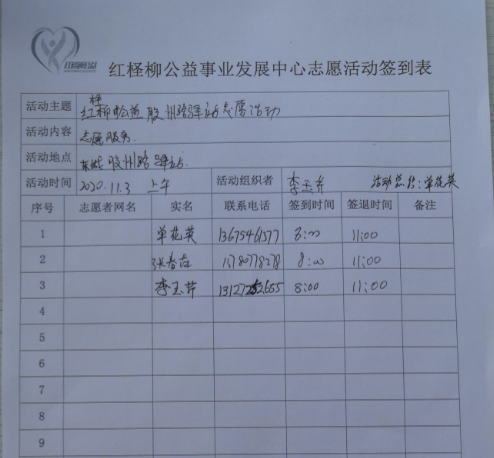 红柽柳公益事业发展中心志愿活动签到表
活动主题 红柽柳公益胶州路驿站志愿活动
活动内容 志愿服务
活动地点 胶州路驿站
活动时间 2020.11.3 上午 活动组织者 李玉芹 活动总结:单花英
序号 志愿者网名 实名 联系电话 签到时间 签退时间 备注
1 单花英 13675461577 8:00 11:00
2 8:00 11:00
3 李玉芹 8:00 11:00
4
5
6
7
8
9